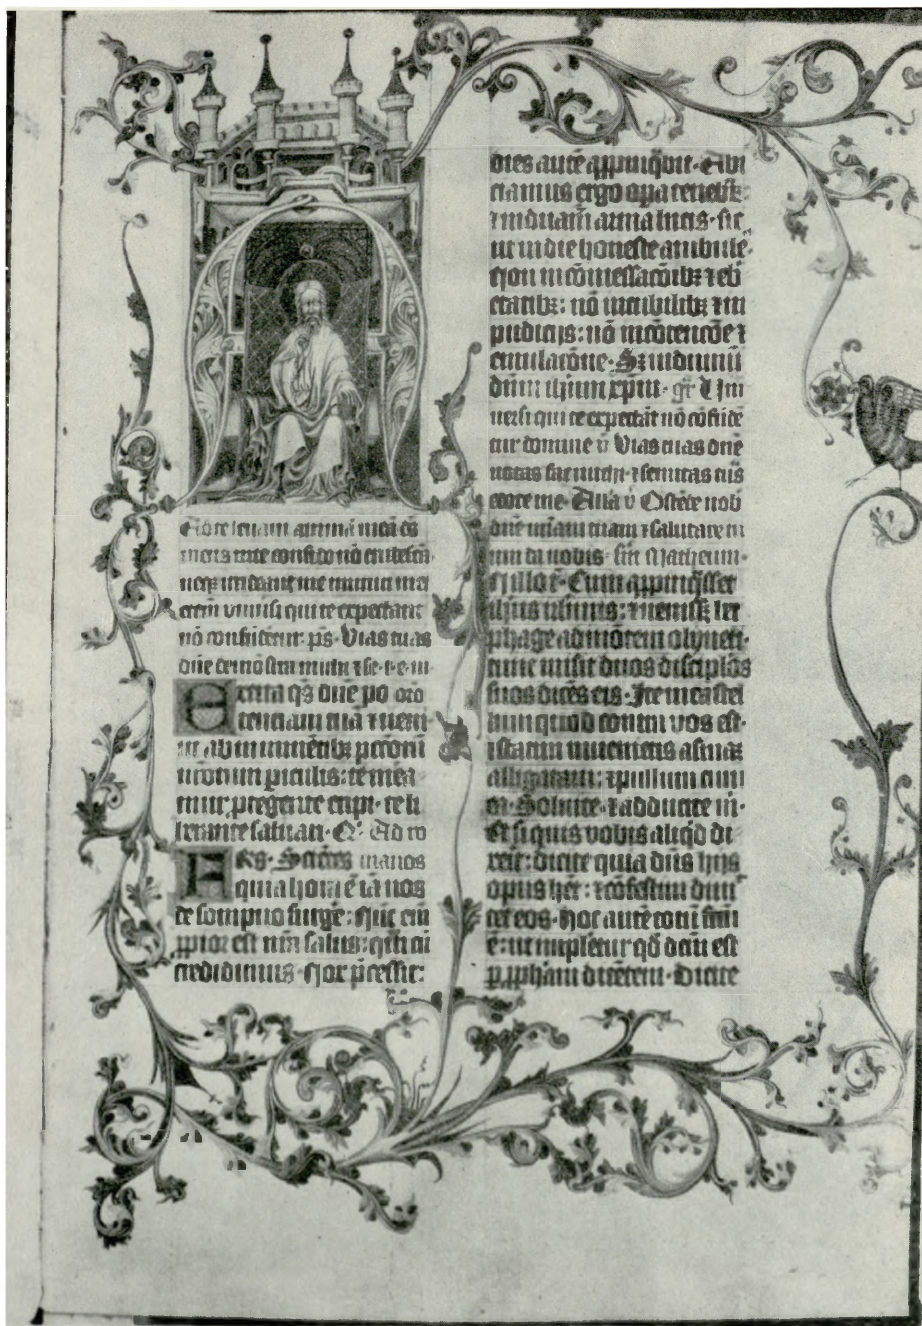 Ad te levavi animā meā ds
meus in te confido nō erubescā
neqꝫ irrideant me inimici mei
etenim vniuersi qui te expectant
nō confundētur. p̄s. Vias tuas
dn̄e demōstra michi ⁊ se. t. e. m.
Excita q̄s dn̄e po oro
tenciam tuā ⁊ veni
ut ab iminētibꝫ pctorū
nr̄orum ꝑiculis: te mea
mur ꝓtegente eripi. te li
berante saluari. Q. Ad ro
Fr̄es. Sciētes manos
quia hora ē iā nos
de sompno surgē: nūc eī
ꝓpior est nr̄a salus: q̄ȝ cū
credidimus. Nox p̄cessit:
dies autē appīquit. Abi
ciamus ergo opa tenebꝝ:
⁊ induam̄ arma lucis. sic
ut in die honeste ambulē.
Non in cōmessacōibꝫ ⁊ ebri
etatibꝫ: nō in cubilibꝫ ⁊ in
pudicijs: nō in cōtencōe ⁊
emulacōne. Sꝫ induimī
dn̄m ihm̄ xp̄m. gr̄. Vni
uersi qui te expectāt nō cōfūdē
tur domine v̄ Vias tuas dn̄e
notas fac michi. ⁊ semitas tuas
edoce me. Alla v̄ Ostēde nobis
dn̄e mīam tuam ⁊ salutare tu
um da nobis. Matheum.
In illo t̄. Cum appinq̄sset
ihūs ⁊ venissꝫ bet
phage ad mōtem oliueti:
tunc misit duos discip̄los
suos dicēs eis. Ite in castel
lum quod contra vos est.
⁊ statim inuenietis asinā
alligatam: ⁊ pullum cum
ea. Soluite. ⁊ adducite m̄.
Et si quis vobis aliqd di
xerit: dicite quia dn̄s hijs
opus h̄et: ⁊ cōfestim dimit
tet eos. Hoc autē totū f̄cm
ē: ut impletur qd dictū est
ꝑ ꝓphām dicētem. Dicite